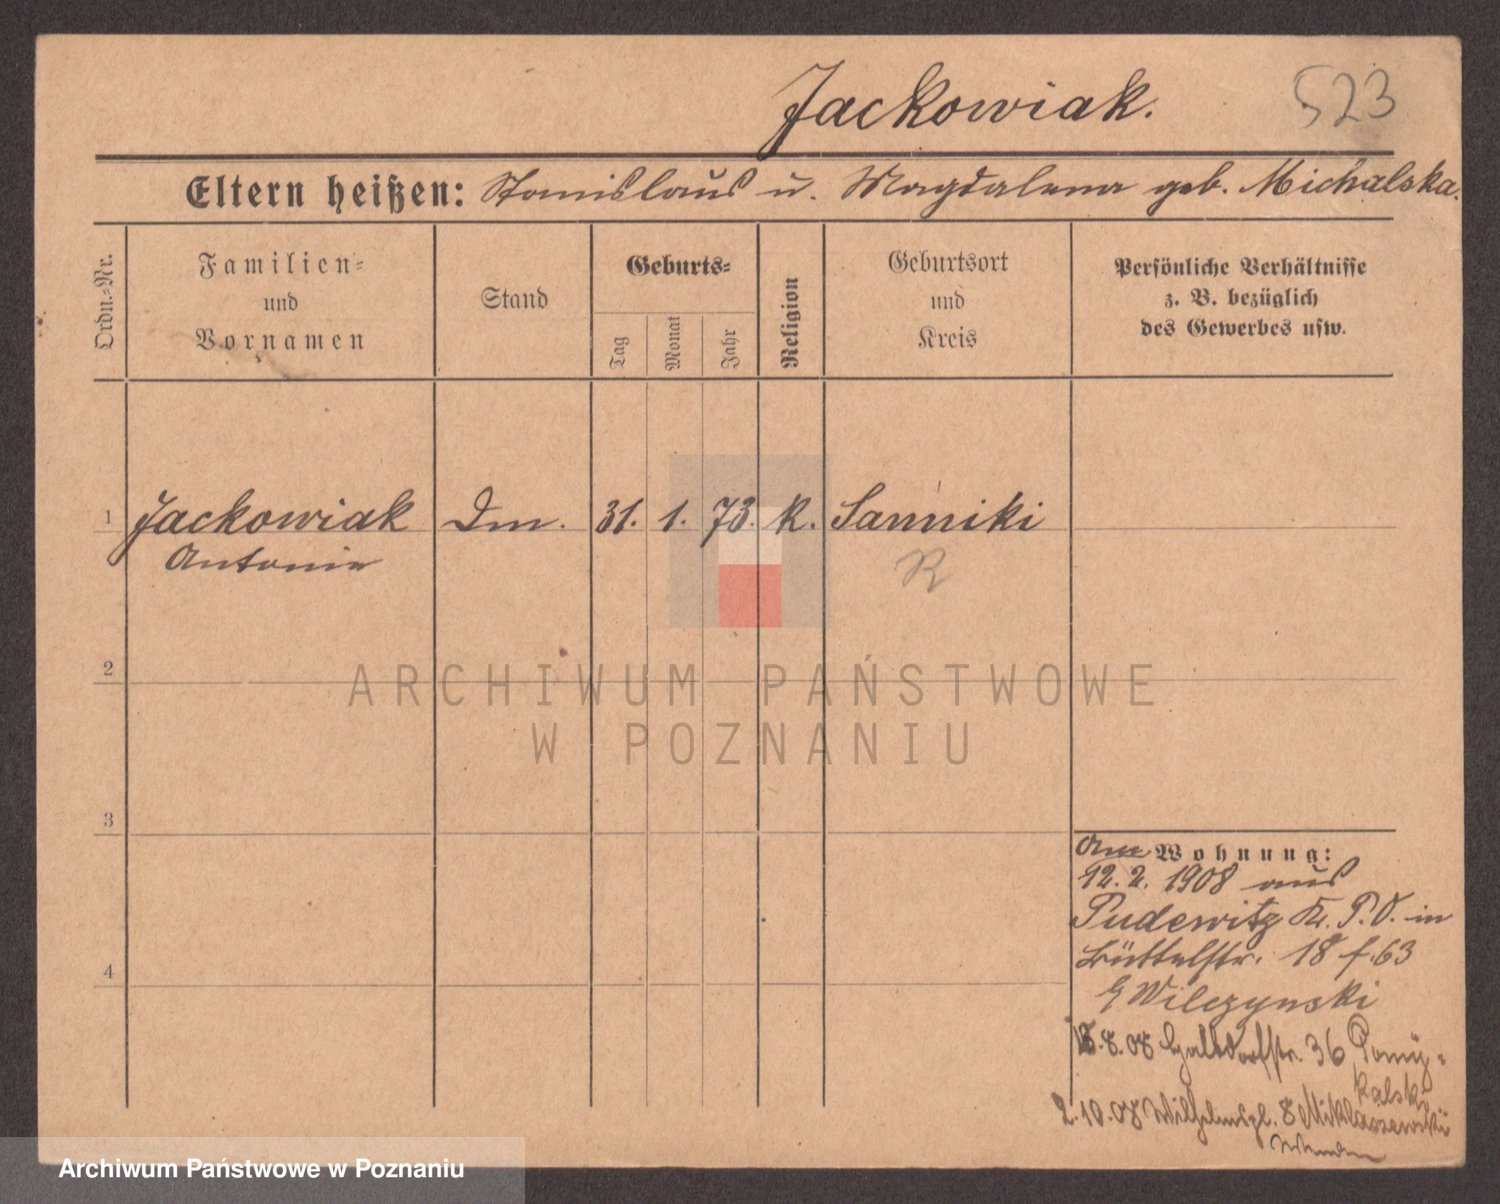 Jackowiak. 523
Eltern heißen: Stanislaus u. Magdalena geb. Michalska.
Ordn.-Nr.
Familien-
und
Vornamen
Stand
Geburts-
Tag
Monat
Jahr
Religion
Geburtsort
und
Kreis
Persönliche Verhältnisse
z. B. bezüglich
des Gewerbes usw.
1 Jackowiak Dm. 31. 1. 73. k. Sanniki
Antonie
R
2
ARCHIWUM PAŃSTWOWE
W POZNANIU
3
Am Wohnung:
12.2. 1908 aus
Pudewitz Kr. P.O. in
Büttelstr. 18 f. 63
Wilczynski
.8.08 36 Pomy-
kalski
4
2.10.08 Wilhelmspl. 8 Miklaszewski
Archiwum Państwowe w Poznaniu